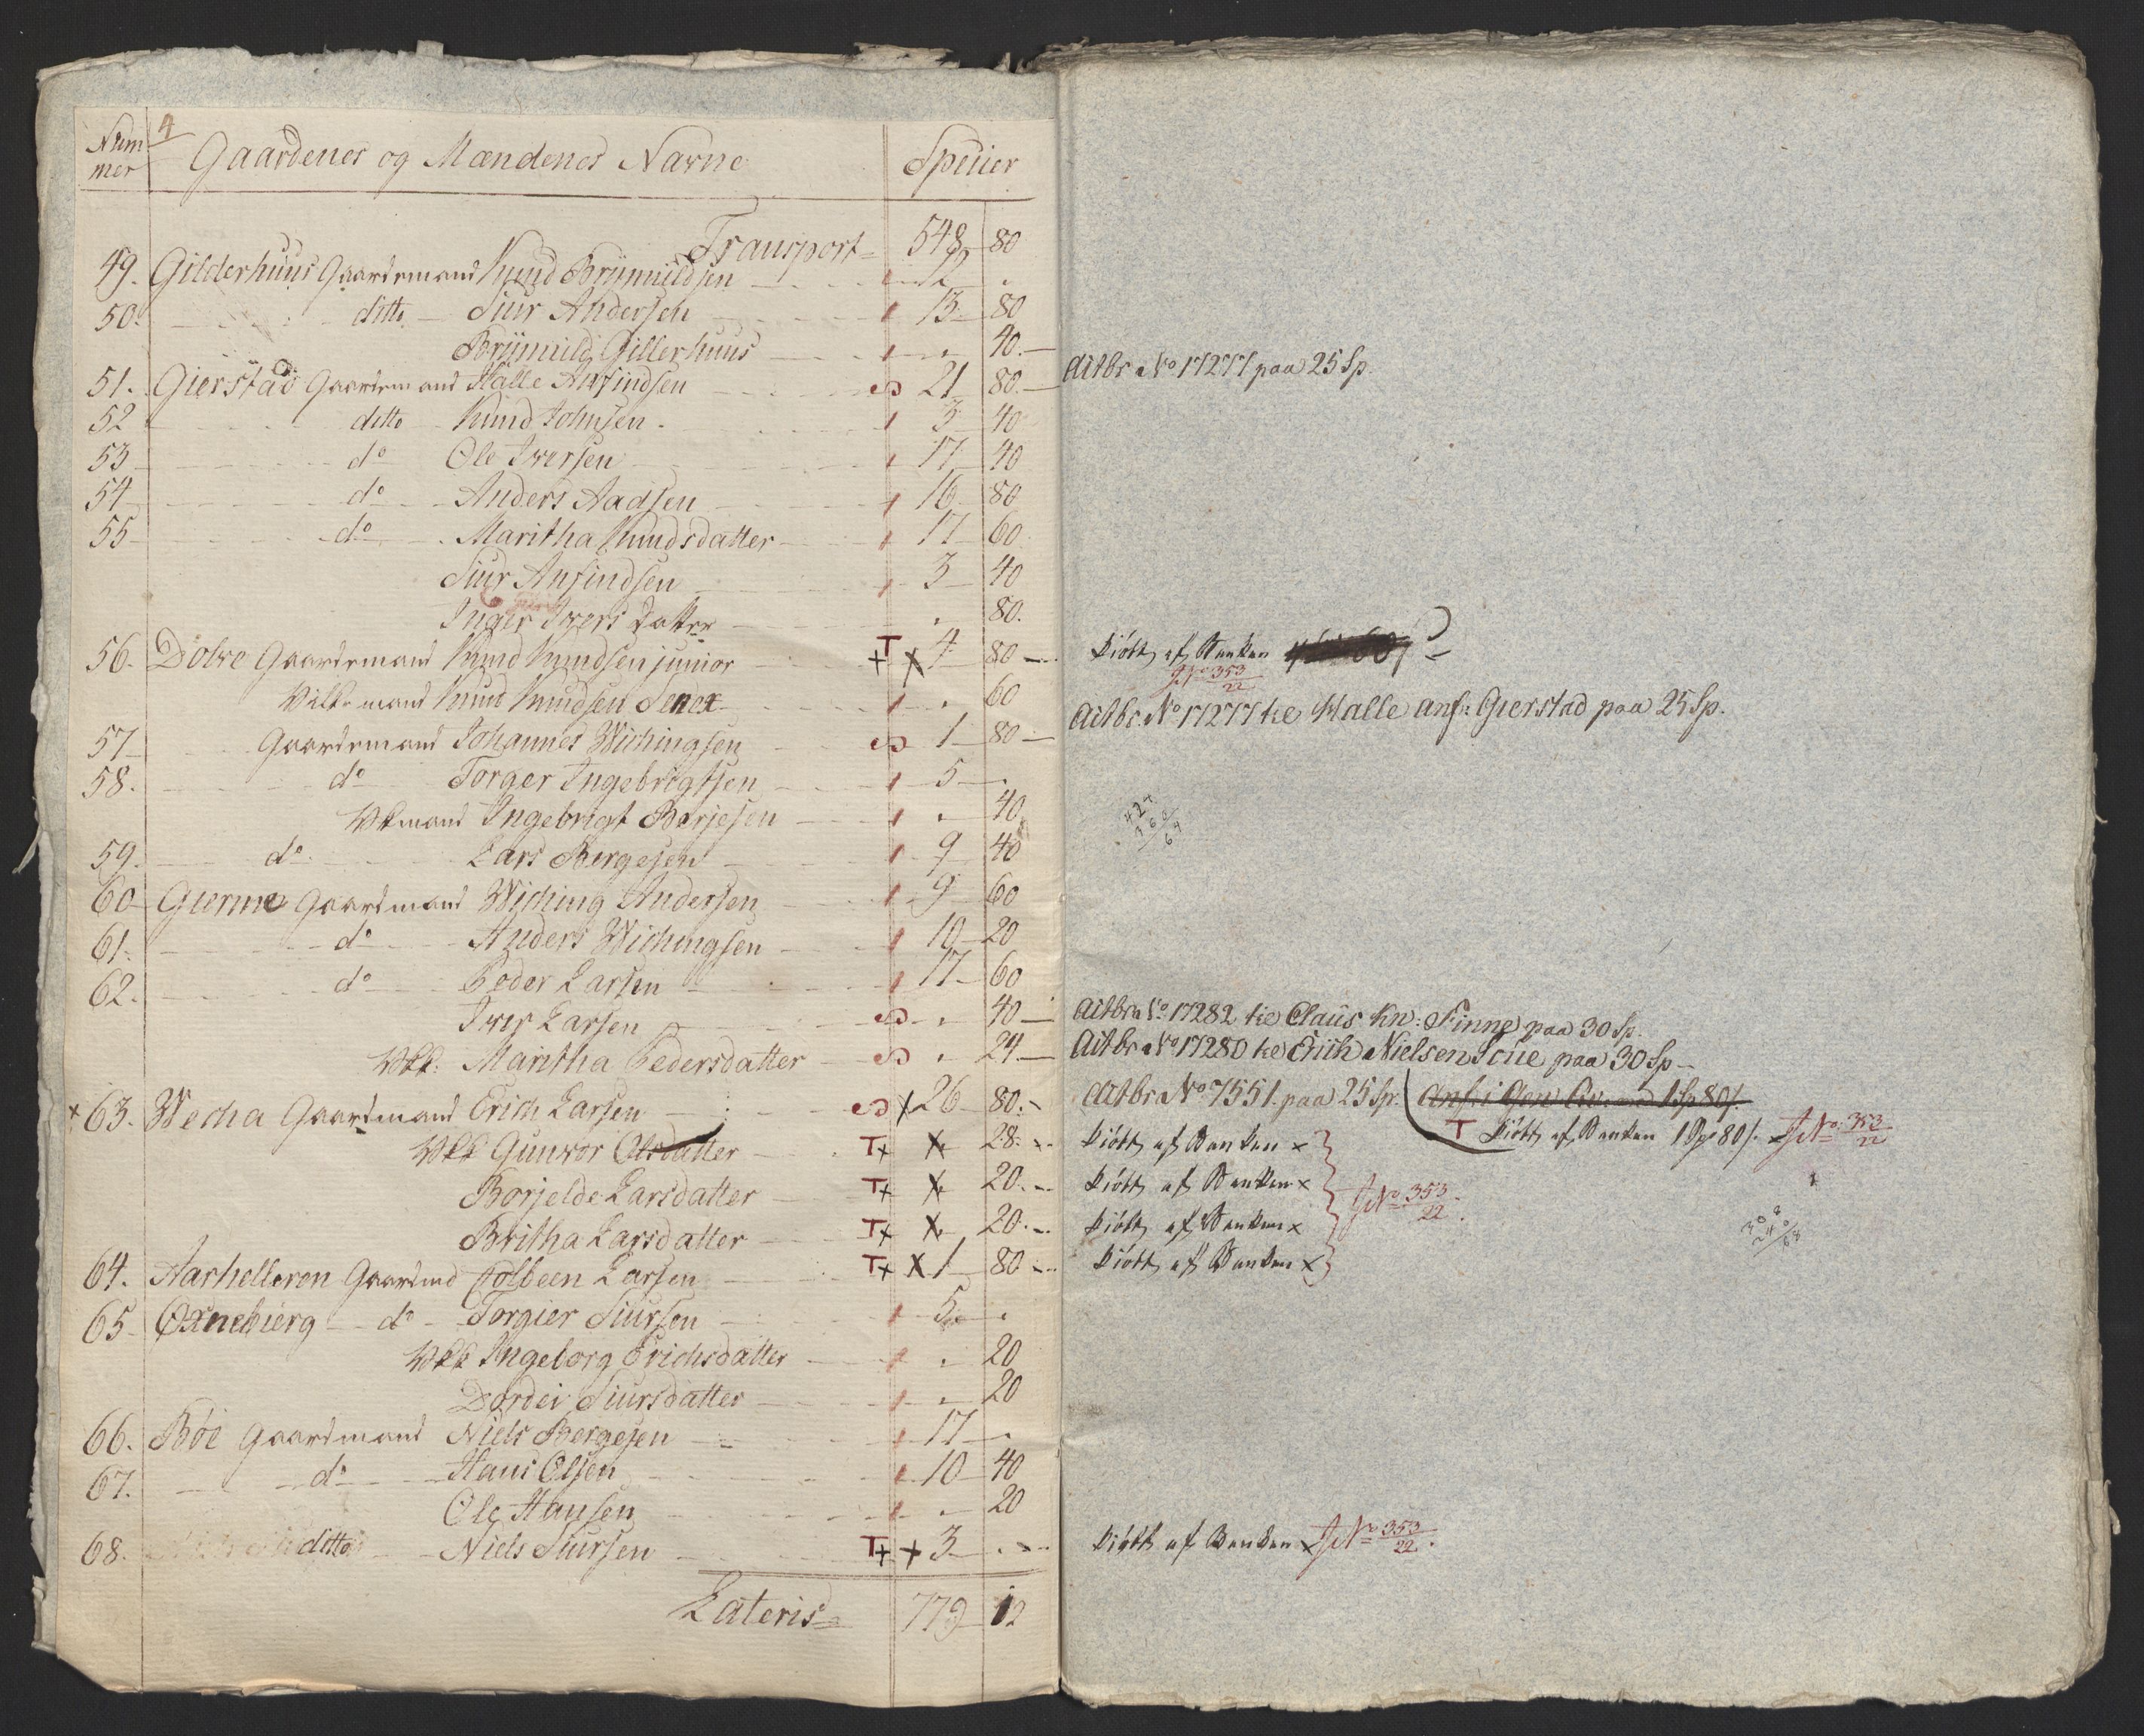 4
Num
mer
Gaardenes og Mændenes Navne
Specier
Transport = 548 80
49. Gilderhuus Gaardemand Knud Brÿnnildsen
50. ditto Siur Andersen 13 80
Brÿnnild Gillerhuus 40.
51. Gierstad Gaardemand Halle Anfindsen 21 80.
52 ditto Knud Johnsen 3 40
53 do Ole Iversen 17 40
54 do Anders Aadsen 16 80
55 do Maritha Knudsdatter 17 60
Siur Anfindsen 3 40
Inger Ivers Datter 80.
56. Dolve Gaardemand Knud Knudsen junior T+ x 4 80
Vilkemand Knud Knudsen Senor 60
57 Gaardemand Johannes Wichingsen 1 80
58. do Torger Ingebrigtsen 5
Vlkmand Ingebrigt Børjesen 40
59. do Lars Børgesen 9 40
60 Gierme Gaardmand Wiching Andersen 9 60
61. do Anders Wichingsen 10 20
62. do Peder Larsen 17 60
Iver Larsen 40
Vlk: Maritha Pedersdatter 24
x 63. Wecha Gaardmand Erich Larsen x 26 80.
Vlk Gunvor Olsdatter T+ x 28.
Borjelde Larsdatter T+ x 20.
Britha Larsdatter T+ x 20.
64. Aarhelleren Gaardmd Colbeen Larsen T+ x 1 80
65 Oxnebierg do Torgier Siursen 5
Vlk Ingeborg Erichsdatter 20
Dordei Siursdatter 20
66. Böe Gaardmand Niels Børgesen 17
67. do Hans Olsen 10 40
Ole Hansen 20
68. ditto Niels Siursen T+ + 3
Lateris = 779 12
Actbr No 17277 paa 25 Sp.
Kiöbt af Banken
No 353/22
Actbr. No 17277 til Halle Anf: Gierstad paa 25 Sp.
424
360
64
Actbr No 17282 til Claus Kn: Finne paa 30 Sp.
Actbr No 17280 til Erich Nielsen Tøue paa 30 Sp
Actbr No 7551. paa 25 Sp.
T Kiöbt af Banken 1 Sp 80 s. No 353/22
Kiöbt af Banken x
Kiöbt af Banken x No 353/22.
Kiöbt af Banken x
Kiöbt af Banken x
308
240
68
Kiöbt af Banken x No 353/22.